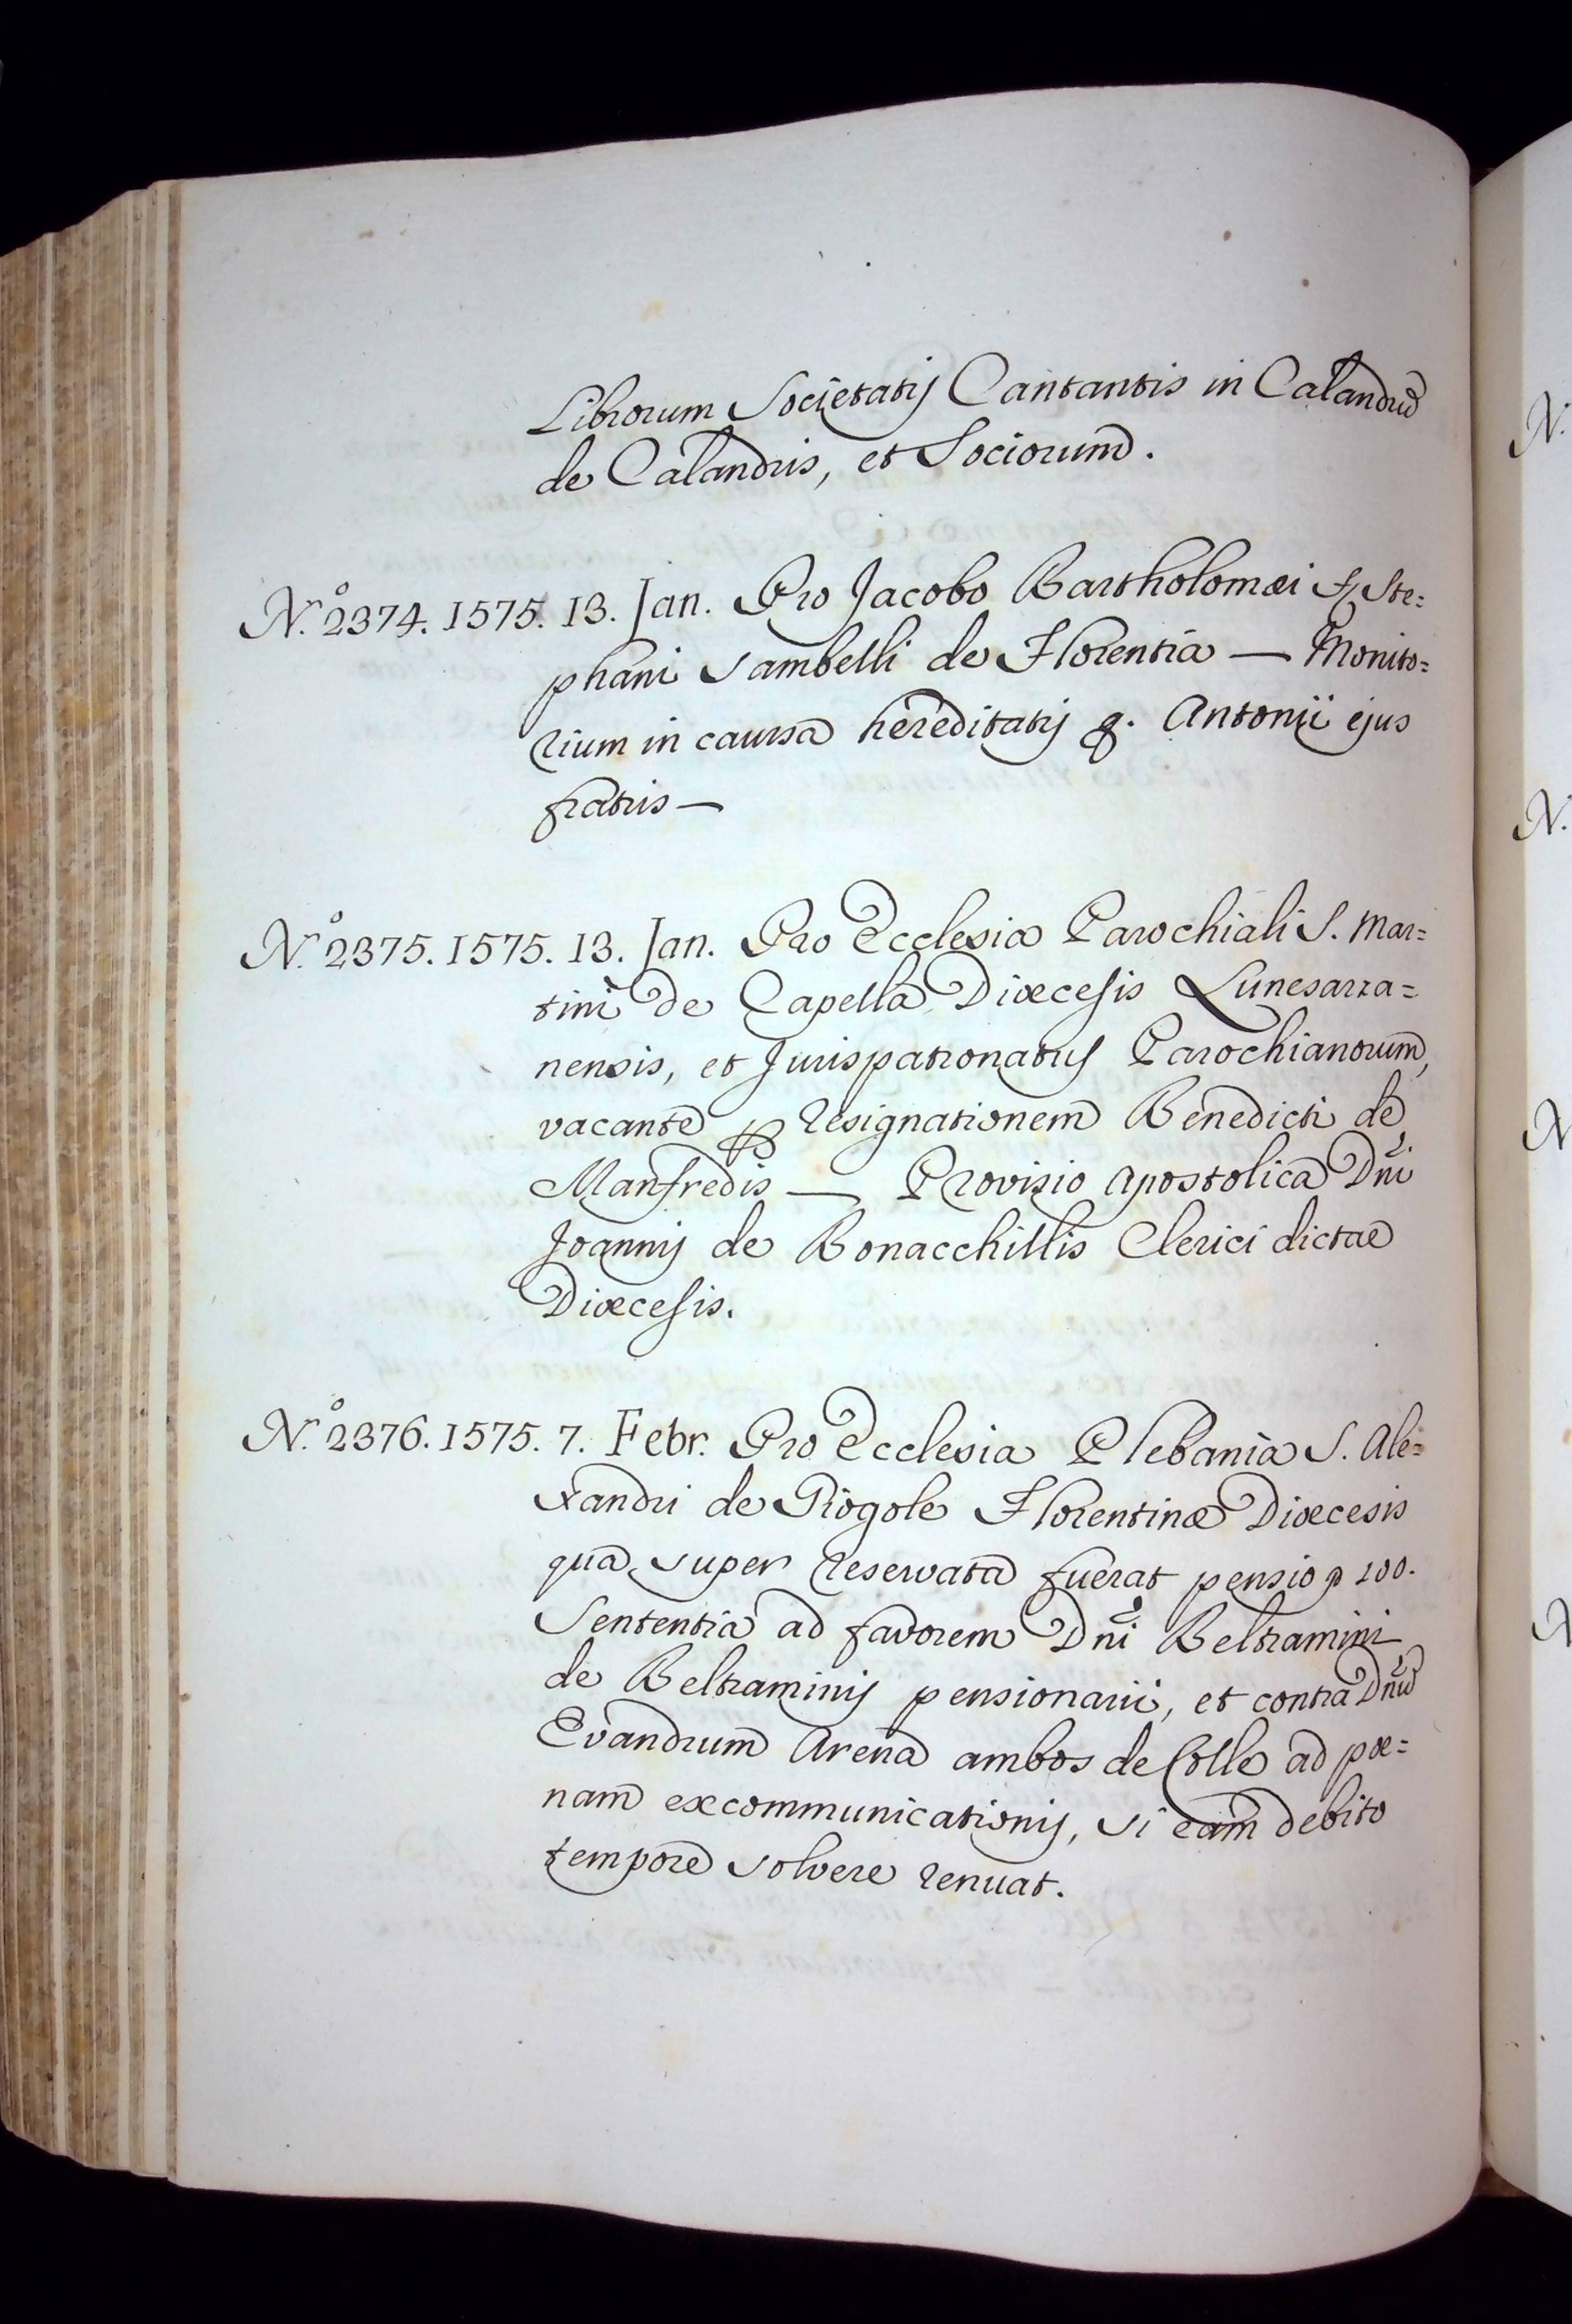 Librorum Societatis Cantantis in Calandrū
de Calandris, et Sociorum.
N.º 2374. 1575. 13. Jan. Pro Jacobo Bartholomæi Ste=
phani Sambelli de Florentia — Monito=
rium in caussa hereditatis q. Antonii ejus
fratris —
N.º 2375. 1575. 13. Jan. Pro Ecclesia Parochiali S. Mar=
tini de Capella Diœcesis Lunesarza=
nensis, et Jurispatronatus Parochianorum,
vacante p̱ resignationem Benedicti de
Manfredis — Provisio Apostolica Dn̄i
Joannis de Bonacchillis Clerici dictae
Diœcesis.
N.º 2376. 1575. 7. Febr. Pro Ecclesia Plebania S. Ale=
xandri de Giogole Florentinæ Diœcesis
qua super reservata fuerat pensio 100.
Sententia ad favorem Dn̄i Beltramini
de Beltraminis pensionarii, et contra Dn̄ū
Evandrum Arena ambos de Colle ad pœ=
nam excommunicationis, si eam debito
tempore solvere renuat.
N.
N.
N
N